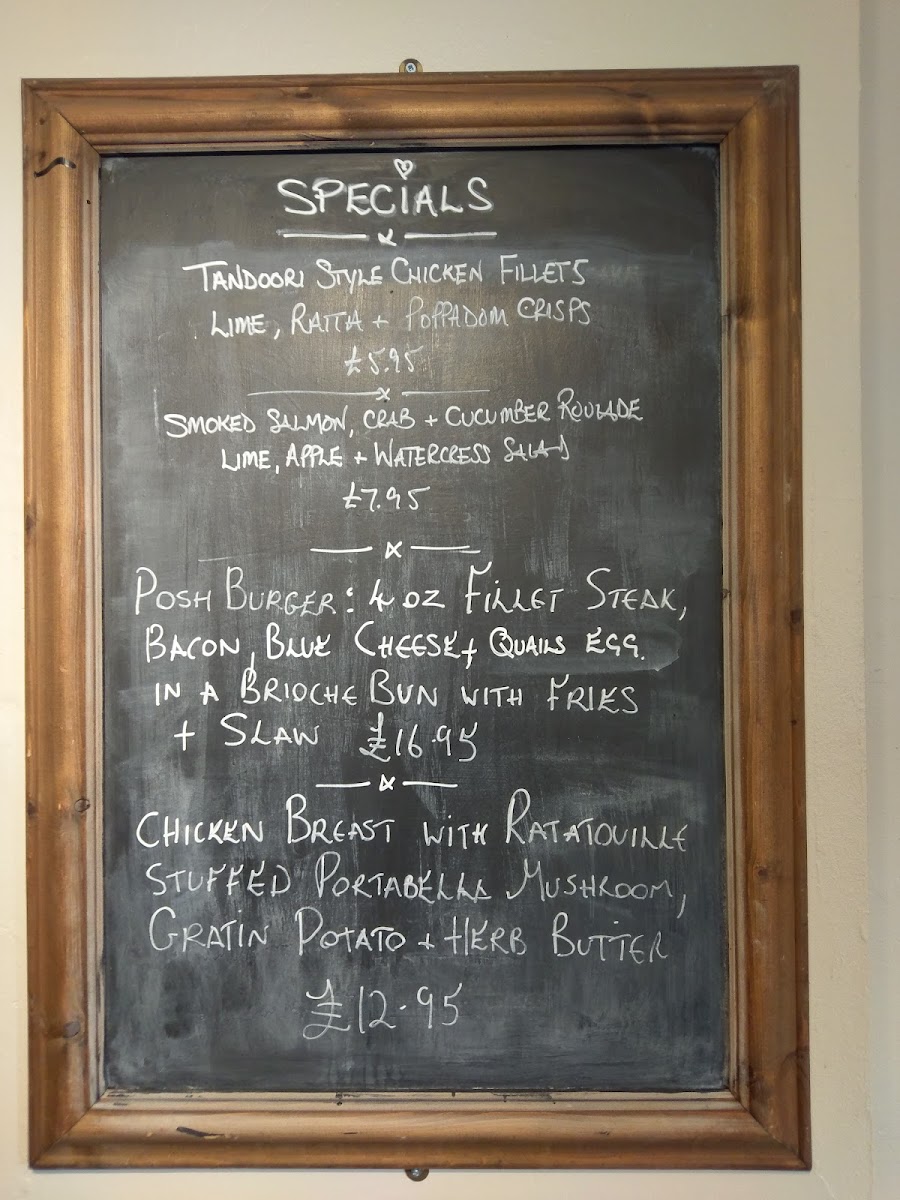 SPECIALS
TANDOORI STYLE CHICKEN FILLETS
LIME, RAITA + POPPADOM CRISPS
£5.95
SMOKED SALMON, CRAB + CUCUMBER ROULADE
LIME, APPLE + WATERCRESS SALAD
£7.95
POSH BURGER: 4 OZ FILLET STEAK,
BACON, BLUE CHEESE + QUAILS EGG.
IN A BRIOCHE BUN WITH FRIES
+ SLAW £16.95
CHICKEN BREAST WITH RATATOUILLE
STUFFED PORTABELLA MUSHROOM,
GRATIN POTATO + HERB BUTTER
£12.95